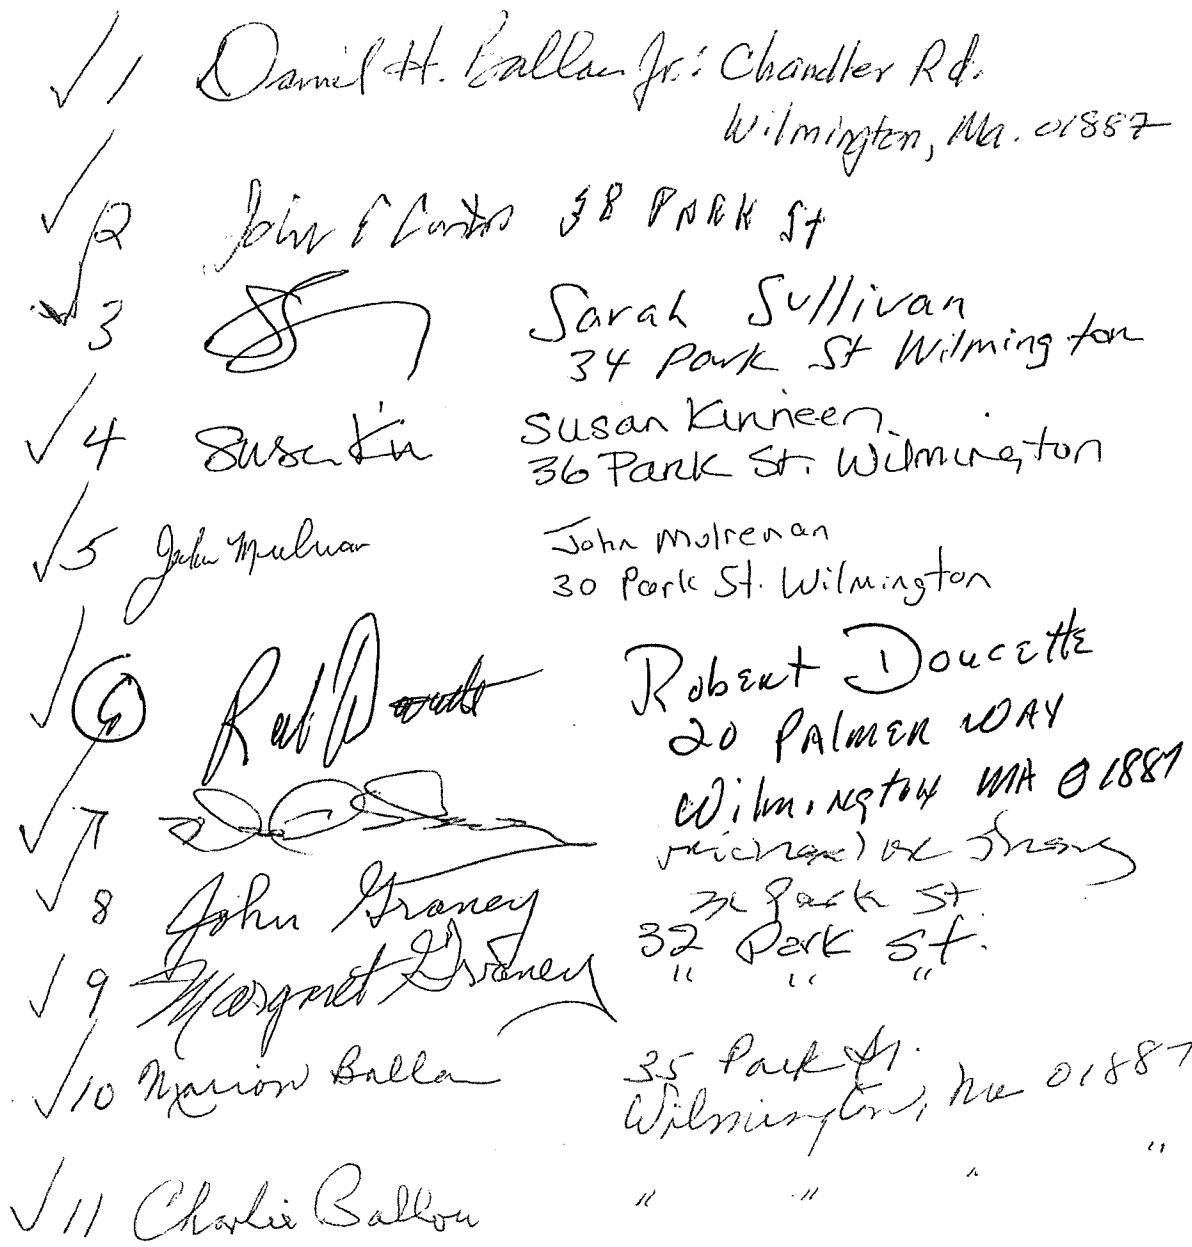 ✓ 1 Daniel H. Ballou Jr.: Chandler Rd.
Wilmington, Ma. 01887
✓ 2 John 38 PARK St
✓ 3 Sarah Sullivan
34 Park St Wilmington
✓ 4 Susan Kin Susan Kinneen
36 Park St. Wilmington
✓ 5 John Mulrenan John Mulrenan
30 Park St. Wilmington
✓ 6 Rob Doucette Robert Doucette
20 PALMER WAY
Wilmington MA 01887
✓ 7
Park St
✓ 8 John Graney 32 Park St.
✓ 9 Margaret Graney " " "
✓ 10 Marion Ballou 35 Park St.
Wilmington, Ma 01887
✓ 11 Charlie Ballou " " " "